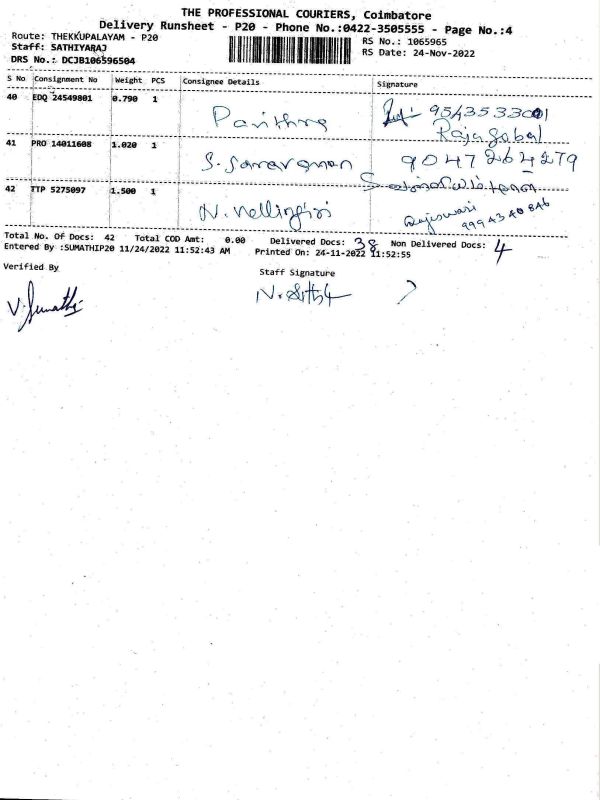 THE PROFESSIONAL COURIERS, Coimbatore
Delivery Runsheet - P20 - Phone No.:0422-3505555 - Page No.:4
Route: THEKKUPALAYAM - P20
RS No.: 1065965
Staff: SATHIYARAJ
RS Date: 24-Nov-2022
DRS No.: DCJB106596504
S No Consignment No Weight PCS Consignee Details Signature
40 EDQ 24549801 0.790 1 Pavithra
Rajagobal
41 PRO 14011608 1.020 1 S. Saravanan 9047264279
42 TTP 5275097 1.500 1 N. Nellingiri
Rajeswari
Total No. Of Docs: 42 Total COD Amt: 0.00 Delivered Docs: 38 Non Delivered Docs: 4
Entered By :SUMATHIP20 11/24/2022 11:52:43 AM Printed On: 24-11-2022 11:52:55
Verified By
Staff Signature
V. Sumathi